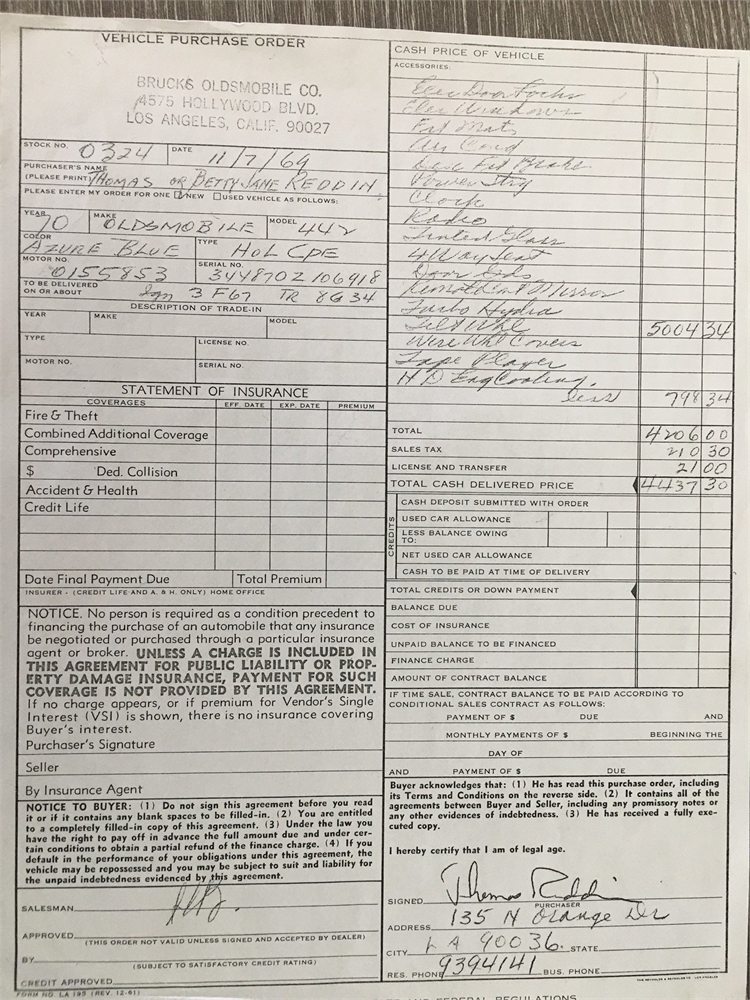 VEHICLE PURCHASE ORDER
BRUCKS OLDSMOBILE CO.
4575 HOLLYWOOD BLVD.
LOS ANGELES, CALIF. 90027
STOCK NO. 0324 DATE 11/7/69
PURCHASER'S NAME
(PLEASE PRINT) THOMAS OR BETTY JANE REDDIN
PLEASE ENTER MY ORDER FOR ONE NEW USED VEHICLE AS FOLLOWS:
YEAR 70 MAKE OLDSMOBILE MODEL 442
COLOR AZURE BLUE TYPE HOL CPE
MOTOR NO. 0155853 SERIAL NO. 344870Z106918
TO BE DELIVERED
ON OR ABOUT Ign 3F67 TR 8G34
DESCRIPTION OF TRADE-IN
YEAR MAKE MODEL
TYPE LICENSE NO.
MOTOR NO. SERIAL NO.
STATEMENT OF INSURANCE
COVERAGES EFF. DATE EXP. DATE PREMIUM
Fire & Theft
Combined Additional Coverage
Comprehensive
$ Ded. Collision
Accident & Health
Credit Life
Date Final Payment Due Total Premium
INSURER - (CREDIT LIFE AND A. & H. ONLY) HOME OFFICE
NOTICE. No person is required as a condition precedent to
financing the purchase of an automobile that any insurance
be negotiated or purchased through a particular insurance
agent or broker. UNLESS A CHARGE IS INCLUDED IN
THIS AGREEMENT FOR PUBLIC LIABILITY OR PROP-
ERTY DAMAGE INSURANCE, PAYMENT FOR SUCH
COVERAGE IS NOT PROVIDED BY THIS AGREEMENT.
If no charge appears, or if premium for Vendor's Single
Interest (VSI) is shown, there is no insurance covering
Buyer's interest.
Purchaser's Signature
Seller
By Insurance Agent
NOTICE TO BUYER: (1) Do not sign this agreement before you read
it or if it contains any blank spaces to be filled-in. (2) You are entitled
to a completely filled-in copy of this agreement. (3) Under the law you
have the right to pay off in advance the full amount due and under cer-
tain conditions to obtain a partial refund of the finance charge. (4) If you
default in the performance of your obligations under this agreement, the
vehicle may be repossessed and you may be subject to suit and liability for
the unpaid indebtedness evidenced by this agreement.
SALESMAN
APPROVED
(THIS ORDER NOT VALID UNLESS SIGNED AND ACCEPTED BY DEALER)
BY
(SUBJECT TO SATISFACTORY CREDIT RATING)
CREDIT APPROVED
FORM NO. LA 195 (REV. 12-61)
CASH PRICE OF VEHICLE
ACCESSORIES:
Elec Door Locks
Elec Windows
Fat Mats
Air Cond
Disc Frt Brake
Power Strg
Clock
Radio
Tinted Glass
4 Way Seat
Door Gds
Remote Cont Mirror
Turbo Hydra
Tilt Whl 5004 34
Wire Whl Covers
Tape Player
H D Eng Cooling.
less 798 34
TOTAL 4206 00
SALES TAX 210 30
LICENSE AND TRANSFER 21 00
TOTAL CASH DELIVERED PRICE 4437 30
CREDITS
CASH DEPOSIT SUBMITTED WITH ORDER
USED CAR ALLOWANCE
LESS BALANCE OWING
TO:
NET USED CAR ALLOWANCE
CASH TO BE PAID AT TIME OF DELIVERY
TOTAL CREDITS OR DOWN PAYMENT
BALANCE DUE
COST OF INSURANCE
UNPAID BALANCE TO BE FINANCED
FINANCE CHARGE
AMOUNT OF CONTRACT BALANCE
IF TIME SALE, CONTRACT BALANCE TO BE PAID ACCORDING TO
CONDITIONAL SALES CONTRACT AS FOLLOWS:
PAYMENT OF $ DUE AND
MONTHLY PAYMENTS OF $ BEGINNING THE
DAY OF
AND PAYMENT OF $ DUE
Buyer acknowledges that: (1) He has read this purchase order, including
its Terms and Conditions on the reverse side. (2) It contains all of the
agreements between Buyer and Seller, including any promissory notes or
any other evidences of indebtedness. (3) He has received a fully exe-
cuted copy.
I hereby certify that I am of legal age.
SIGNED Thomas Reddin
PURCHASER
ADDRESS 135 N Orange Dr
CITY LA 90036 STATE
RES. PHONE 9394141 BUS. PHONE
AND FEDERAL REGULATIONS